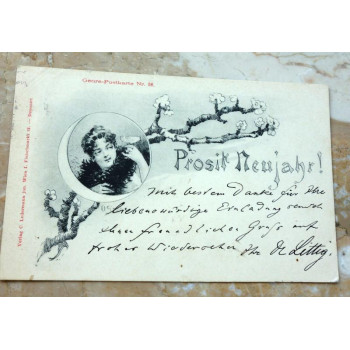 Genre-Postkarte Nr. 36.
Prosit Neujahr!
Mit bestem Danke für Ihre
liebenswürdige Einladung
Ihnen freundlichen Gruß auf
frohes Wiedersehen Ihr Dr Littig
Verlag C. Ledermann jun. Wien I. Fleischmarkt